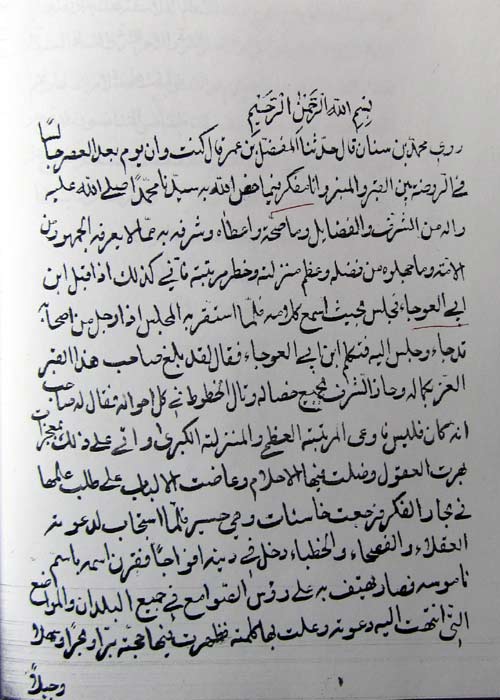 بسم الله الرحمن الرحيم
روى محمد بن سنان قال حدثنا المفضل بن عمر قال كنت ذات يوم بعد العصر جالسا
في الروضة بين القبر والمنبر وانا مفكر فيما خص الله به سيدنا محمدا صلى الله عليه
واله من الشرف والفضايل وما منحه واعطاه وشرفه به مما لا يعرفه الجمهور من
الامة وما جهلوه من فضله وعظم منزلته وخطر مرتبته فاني كذلك اذ اقبل ابن
ابي العوجاء فجلس بحيث اسمع كلامه فلما استقر به المجلس اذا رجل من اصحابه
قد جاء وجلس اليه فتكلم ابن ابي العوجاء فقال لقد بلغ صاحب هذا القبر
العز بكماله وحاز الشرف بجميع خصاله ونال الحظوة في كل احواله فقال له صاحبه
انه كان فليسوفا وعى المرتبة العظمى والمنزلة الكبرى واتى على ذلك بمعجزات
بهرت العقول وضلت فيها الاحلام وغاصت الالباب على طلب علمها
في بحار الفكر فرجعت خاسئات وهي حسير فلما استجاب لدعوته
العقلاء والفصحاء والخطباء دخل في دينه افواجا فقرن اسمه باسم
ناموسه فصار يهتف به على رؤس الصوامع في جميع البلدان والمواضع
التي انتهت اليه دعوته وعلت بها كلمته وظهرت فيها حجته برا وبحرا وسهلا
وجبلا
١